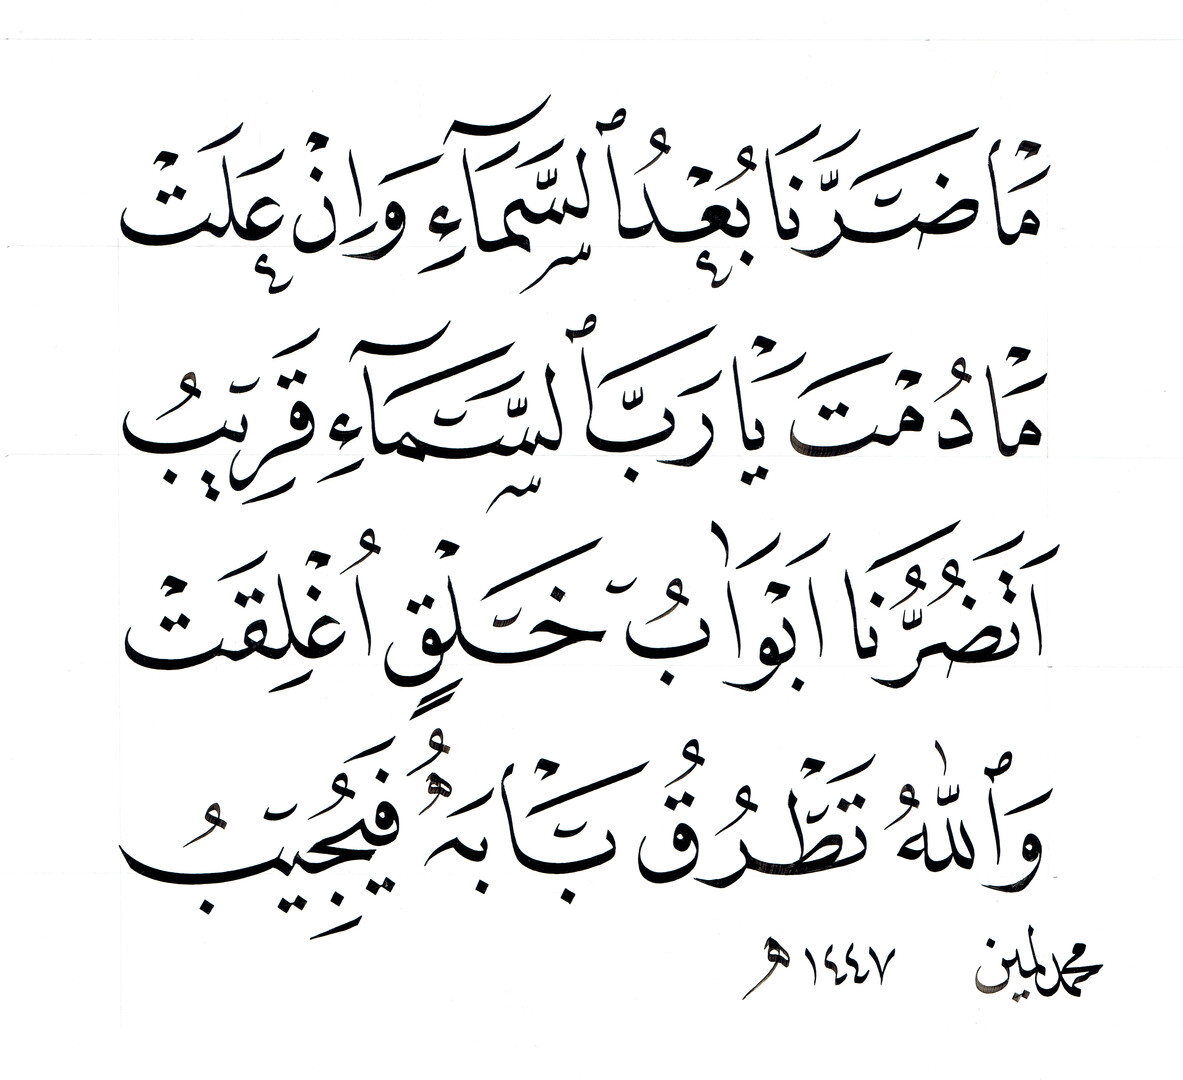 مَا ضَرَّنَا بُعْدُ ٱلسَّمَآءِ وَاِنْ عَلَتْ
مَا دُمْتَ يَا رَبَّ ٱلسَّمَآءِ قَرِيبُ
اَتَضُرُّنَا اَبْوَابُ خَلْقٍ اُغْلِقَتْ
وَٱللّٰهُ تَطْرُقُ بَابَهُ فَيُجِيبُ
محمد لمين ١٤٤٧ هـ